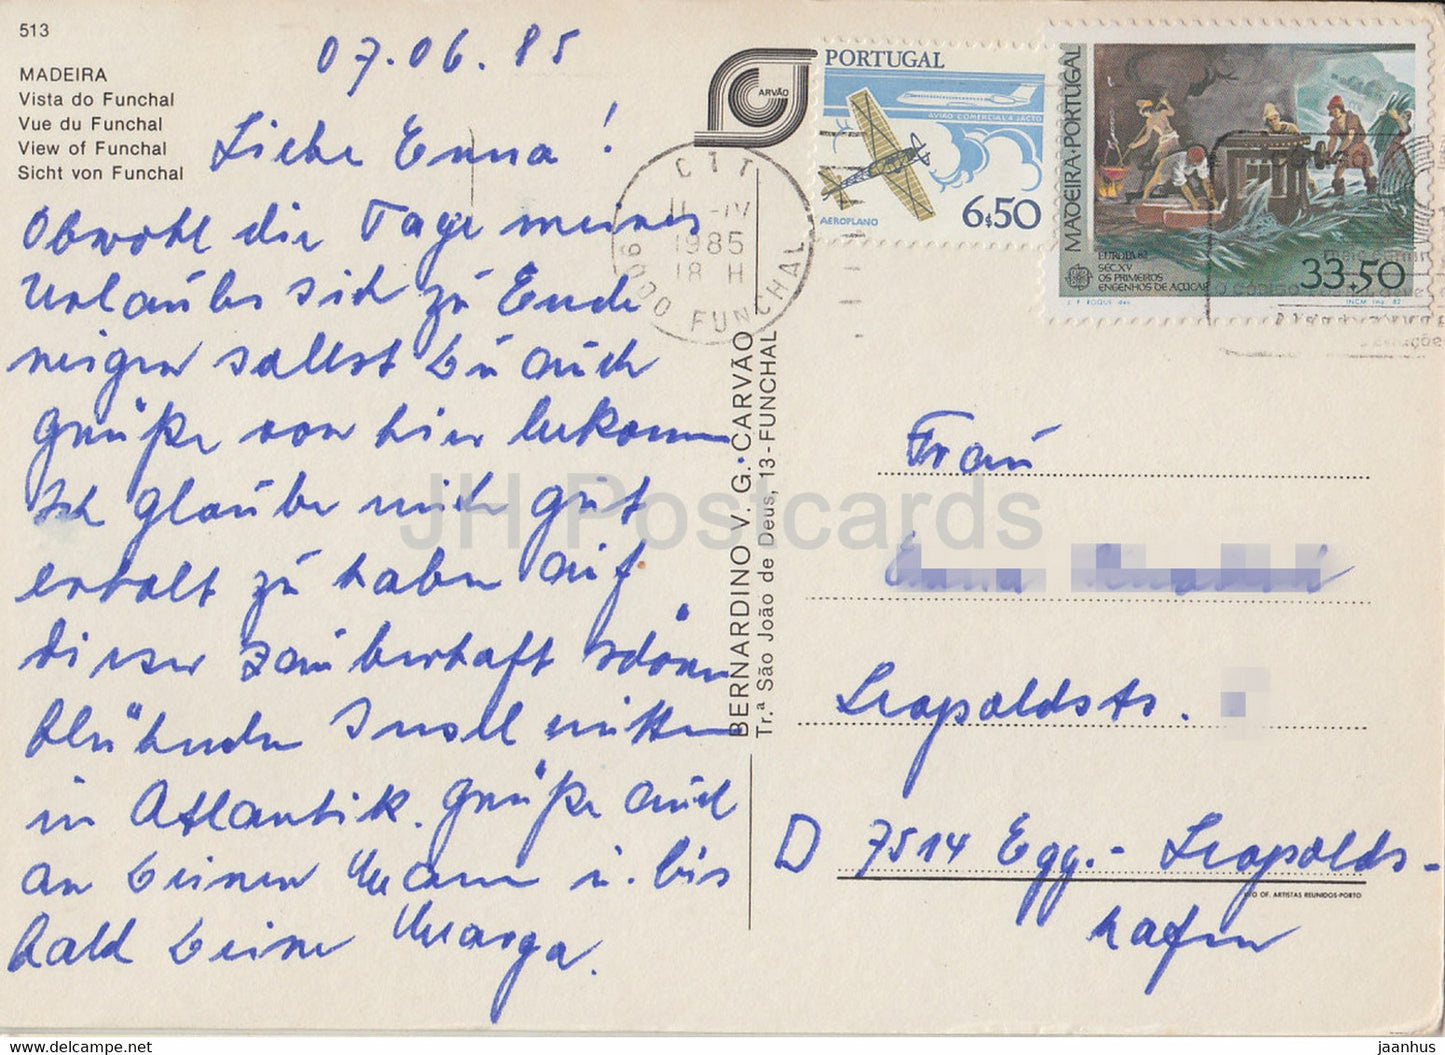 513
MADEIRA
Vista do Funchal
Vue du Funchal
View of Funchal
Sicht von Funchal
07.06.85
Liebe Erna!
Obwohl die Tage meines
Urlaubs sich zu Ende
neigen sollst Du auch
Grüße von hier bekomm
Ich glaube mich gut
erholt zu haben auf
dieser zauberhaft schönen
blühenden Insel mitten
in Atlantik. Grüße auch
an Deinen Mann u. bis
bald Deine Marga.
ARVÃO
BERNARDINO V. G. CARVÃO
Tr.ª São João de Deus, 13-FUNCHAL
CTT
1985
18 H
9000 FUNCHAL
PORTUGAL
AVIÃO COMERCIAL A JACTO
AEROPLANO
6$50
MADEIRA·PORTUGAL
EUROPA 82
SEC.XV
OS PRIMEIROS
ENGENHOS DE AÇUCAR
33$50
INCM
Frau
Leopoldstr.
D 7514 Egg.-Leopolds-
hafen
OF. ARTISTAS REUNIDOS-PORTO
JH Postcards
https://jhpostcards.com
jaanhus